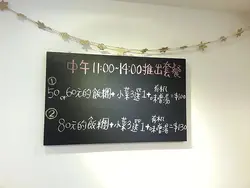 中午11:00-14:00推出套餐
①
50、60元的飯糰+小菜3選1+味噌湯=$100
②
80元的飯糰+小菜3選1+味噌湯=$130